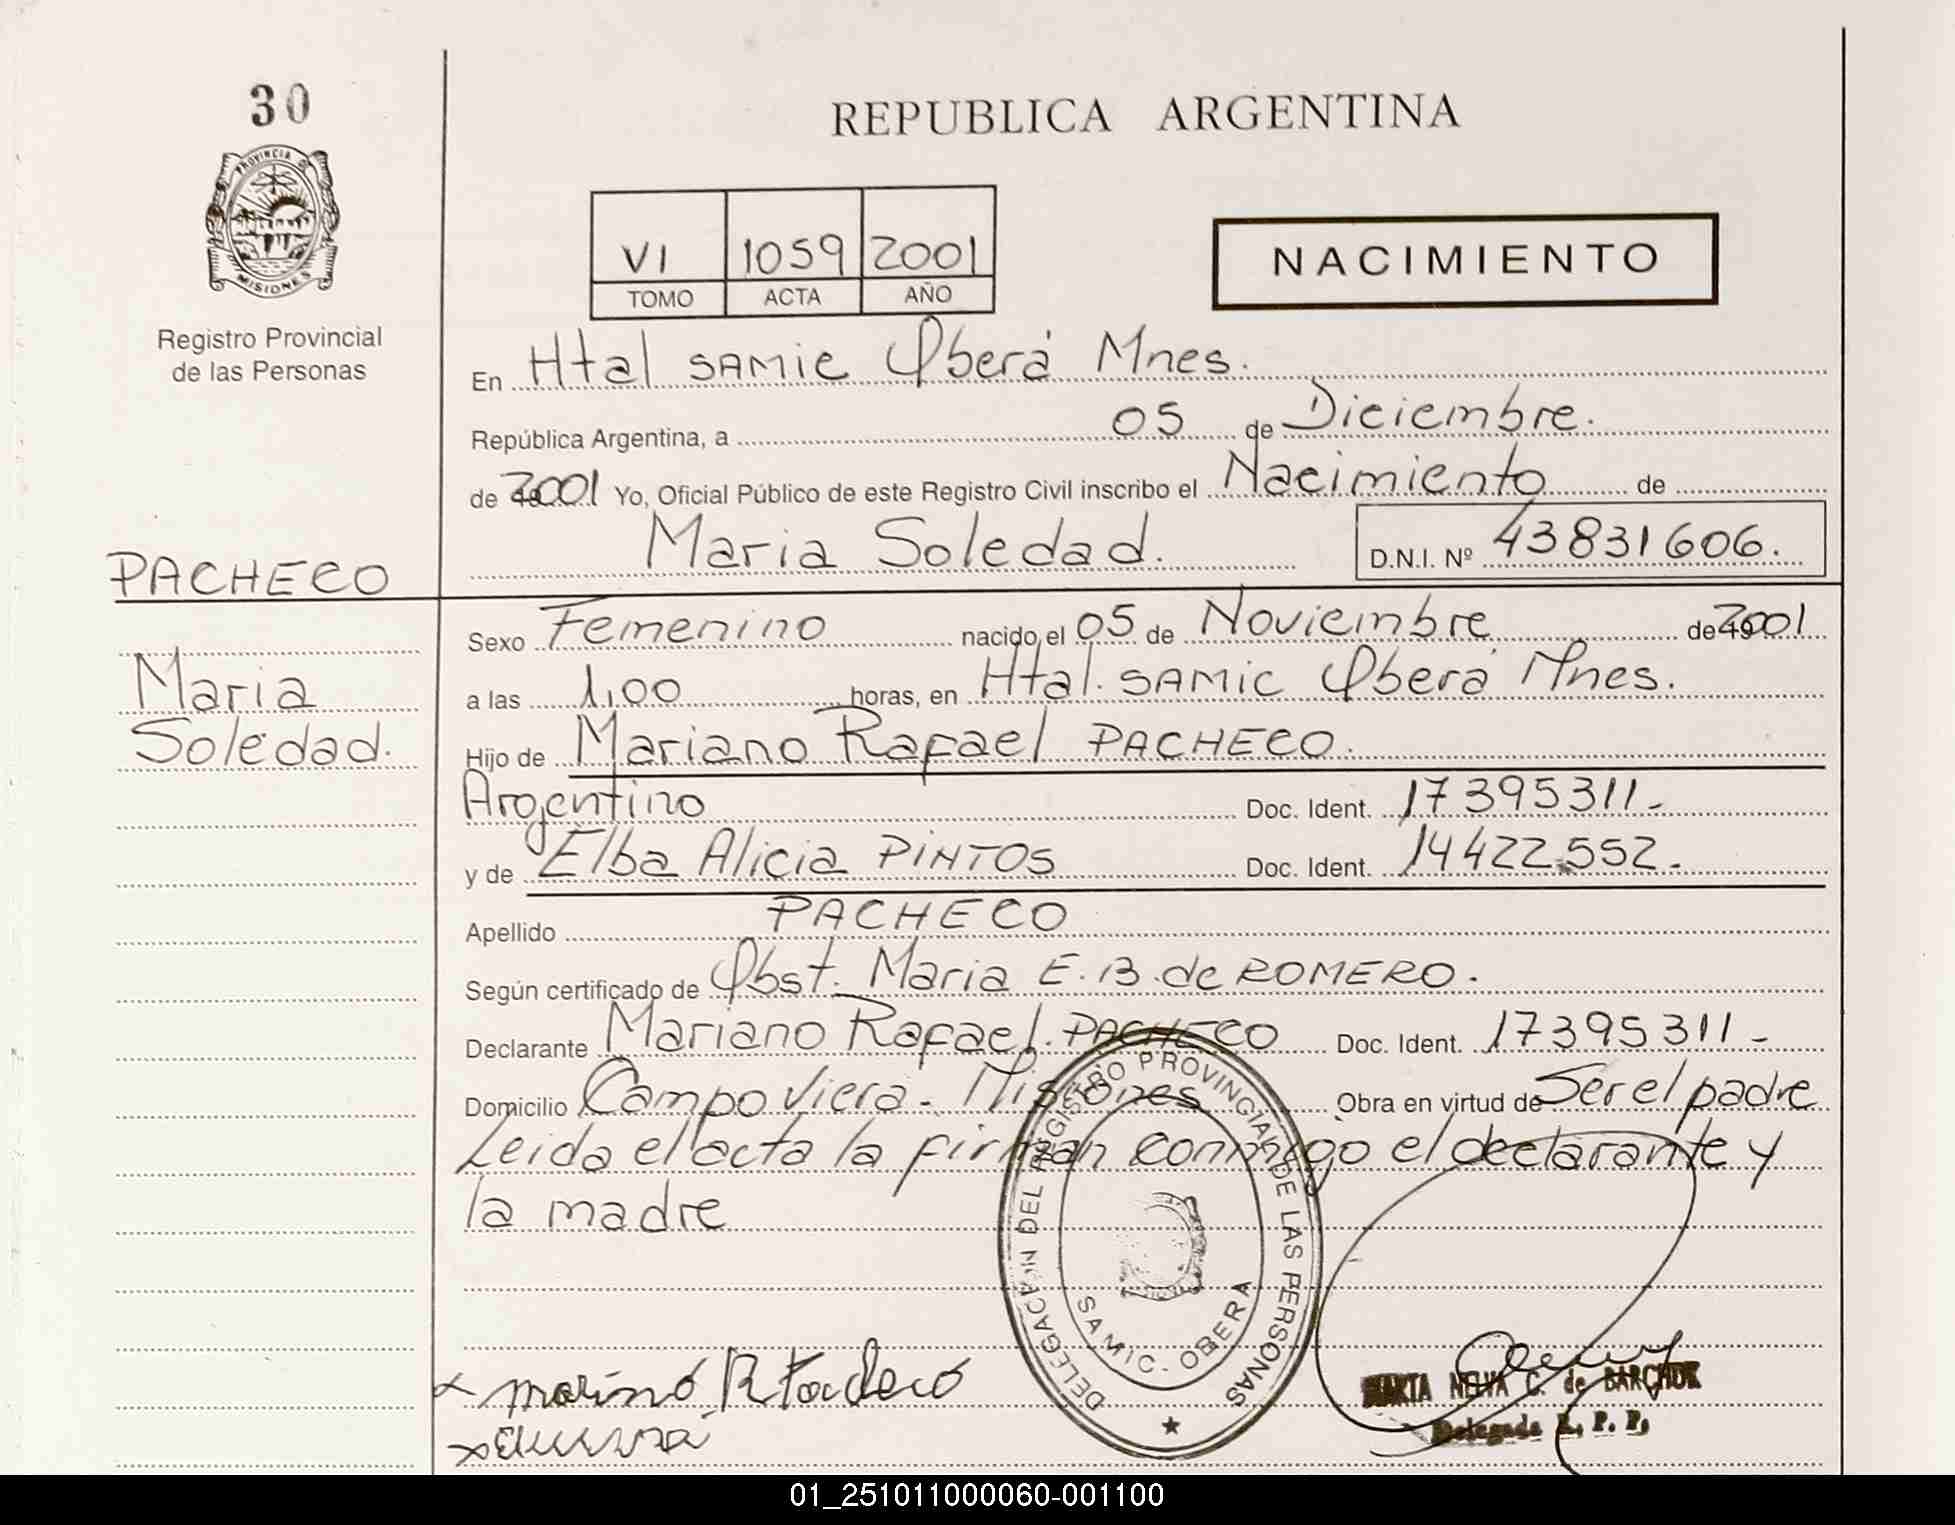 30
PROVINCIA D
MISIONES
Registro Provincial
de las Personas
REPUBLICA ARGENTINA
VI 1059 2001
TOMO ACTA AÑO
NACIMIENTO
En Htal SAMIC Oberá Mnes.
República Argentina, a 05 de Diciembre.
de 2001 Yo, Oficial Público de este Registro Civil inscribo el Nacimiento de
Maria Soledad. D.N.I. Nº 43831606.
PACHECO
Maria
Soledad.
Sexo Femenino nacido el 05 de Noviembre de 2001
a las 1,00 horas, en Htal. SAMIC Oberá Mnes.
Hijo de Mariano Rafael PACHECO.
Argentino Doc. Ident. 17395311-
y de Elba Alicia PINTOS Doc. Ident. 14422.552-
Apellido PACHECO
Según certificado de Obst. Maria E. B. de ROMERO.
Declarante Mariano Rafael. PACHECO Doc. Ident. 17395311-
Domicilio Campo Viera - Misiones Obra en virtud de Ser el padre
Leida el acta la firman conmigo el declarante y
la madre
DELEGACION DEL REGISTRO PROVINCIAL DE LAS PERSONAS
SAMIC - OBERA
MARTA NELVA C. de BARCHUK
Delegada R. P. P.
01_251011000060-001100